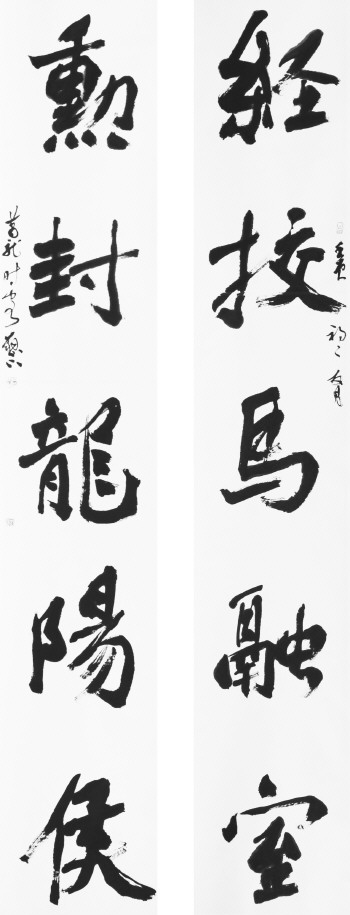 経挍馬融室
勳封龍陽侯